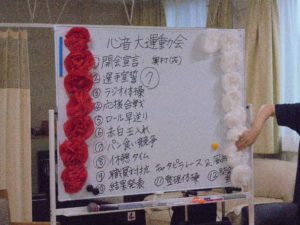 心音大運動会
①開会宣言
②選手宣誓 ⑦
③ラジオ体操
④応援合戦
⑤ロール早送り
⑥赤白玉入れ
⑦パン食い競争
⑧休憩タイム
⑨職員対抗 キャタピラレース
⑩結果発表 ⑪整理体操 ⑫